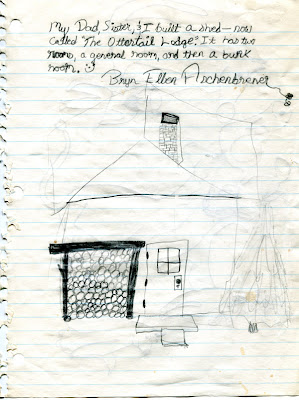 My Dad, Sister, & I built a shed—now
called "The Ottertail Lodge". It has two
rooms, a room, and then a bunk
room. :)
Bryn Ellen Aschenbrener